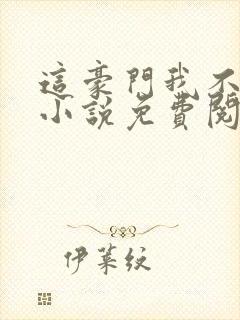 這豪門我不
小說免費閱
伊萊紋